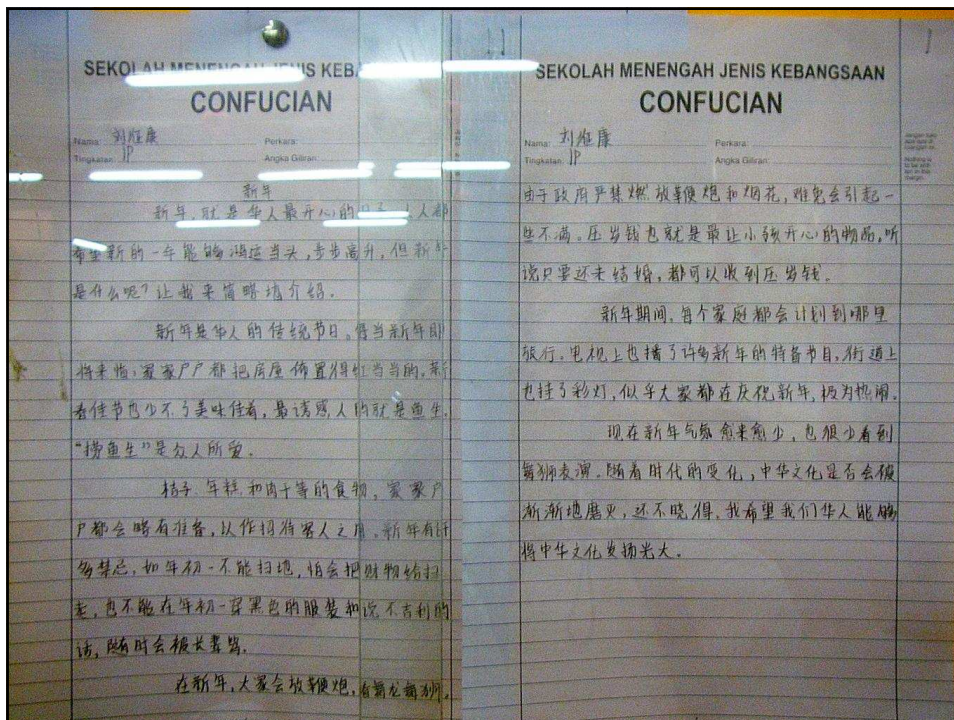 SEKOLAH MENENGAH JENIS KEB
CONFUCIAN
Nama: 刘维康 Perkara:
Tingkatan: 1P Angka Giliran:
新年
新年,就是华人最开心的日子,人人都
希望新的一年能够鸿运当头,步步高升,但新年
是什么呢?让我来简略地介绍。
新年是华人的传统节日。每当新年即
将来临,家家户户都把房屋布置得红当当的,新
春佳节也少不了美味佳肴,最诱惑人的就是鱼生,
“捞鱼生”是众人所爱。
桔子、年糕和肉干等的食物,家家户
户都会略有准备,以作招待客人之用。新年有许
多禁忌,如年初一不能扫地,怕会把财物给扫
走,也不能在年初一穿黑色的服装和说不吉利的
话,随时会被长辈骂。
在新年,大家会放鞭炮,有舞龙舞狮。
SEKOLAH MENENGAH JENIS KEBANGSAAN
CONFUCIAN
Nama: 刘维康 Perkara:
Tingkatan: 1P Angka Giliran:
由于政府严禁燃放鞭炮和烟花,难免会引起一
些不满。压岁钱也就是最让小孩开心的物品,听
说只要还未结婚,都可以收到压岁钱。
新年期间,每个家庭都会计划到哪里
旅行。电视上也播了许多新年的特备节目,街道上
也挂了彩灯,似乎大家都在庆祝新年,极为热闹。
现在新年气氛愈来愈少,也很少看到
舞狮表演。随着时代的变化,中华文化是否会被
渐渐地磨灭,还不晓得。我希望我们华人能够
将中华文化发扬光大。